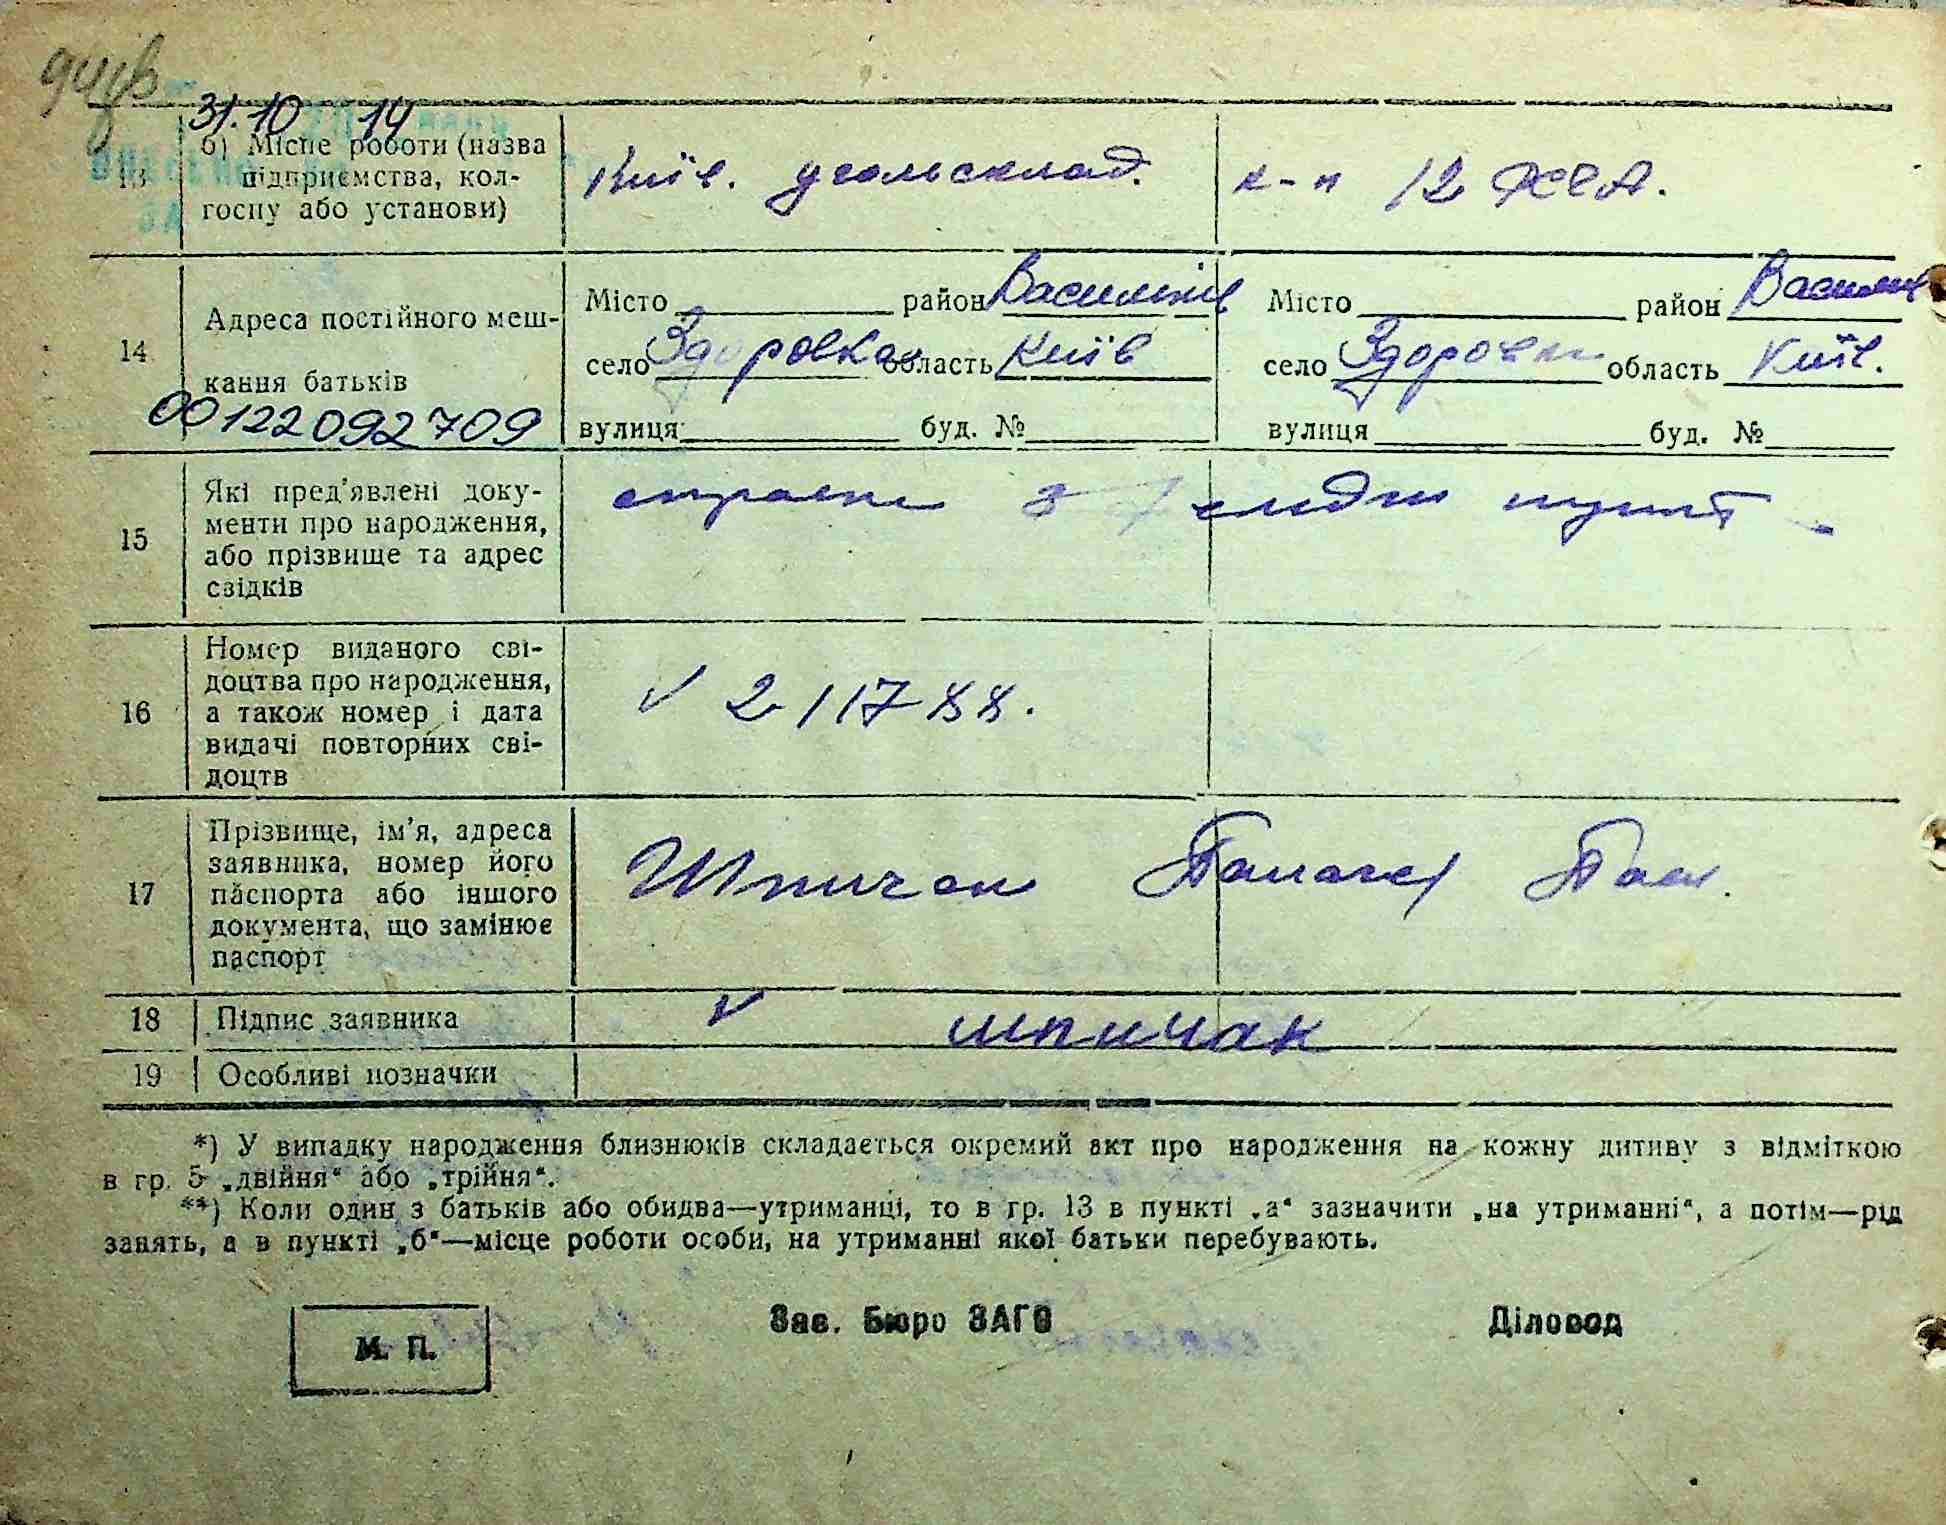 31.10 14
б) Місце роботи (назва
13 підприємства, кол-
госпу або установи)
Київ. угольсклад. к-п 12 РСЧА.
Місто район Васильків Місто район Василк
14 Адреса постійного меш-
село Здоровка область Київ село Здоровки область Київ.
кання батьків
00122092709
вулиця буд. № вулиця буд. №
15 Які пред'явлені доку-
менти про народження,
або прізвище та адрес
свідків
справки з пункт
16 Номер виданого сві-
доцтва про народження,
а також номер і дата
видачі повторних сві-
доцтв
√ 211788.
17 Прізвище, ім'я, адреса
заявника, номер його
паспорта або іншого
документа, що замінює
паспорт
Шпичак
18 Підпис заявника √ шпичак
19 Особливі позначки
*) У випадку народження близнюків складається окремий акт про народження на кожну дитину з відміткою
в гр. 5 „двійня“ або „трійня“.
**) Коли один з батьків або обидва—утриманці, то в гр. 13 в пункті „а“ зазначити „на утриманні“, а потім—рід
занять, а в пункті „б“—місце роботи особи, на утриманні якої батьки перебувають.
М. П. Зав. Бюро ЗАГС Діловод